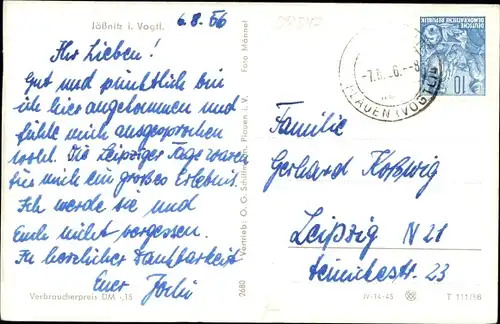 Jößnitz i. Vogtl.
6.8.56
Ihr Lieben!
Gut und pünktlich bin
ich hier angekommen und
fühle mich ausgesprochen
wohl. Die Leipziger Tage waren
für mich ein großes Erlebnis.
Ich werde sie und
Euch nicht vergessen.
In herzlicher Dankbarkeit
Euer
Verbraucherpreis DM -,15
Foto Männel
Plauen i. V.
Vertrieb: O. G.
2680
DEUTSCHE
DEMOKRATISCHE REPUBLIK
10
PLAUEN (VOGTL)
Familie
Gerhard Koßwig
Leipzig N 21
23
IV-14-45
T 111/56